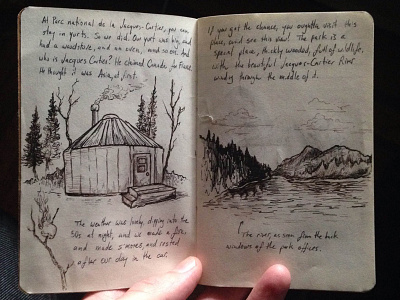 At Parc national de la Jacques-Cartier, you can
stay in yurts. So we did. Our yurt was big, and
had a woodstove, and an oven, and so on. And
who is Jacques Cartier? He claimed Canada for France.
He thought it was Asia, at first.
The weather was lovely, dipping into the
30s at night, and we made a fire,
and made s'mores, and rested
after our day in the car.
If you get the chance, you oughtta visit this
place, and see this view! The park is a
special place, thickly wooded, full of wildlife,
with the beautiful Jacques-Cartier River
winding through the middle of it.
The river, as seen from the back
windows of the park offices.